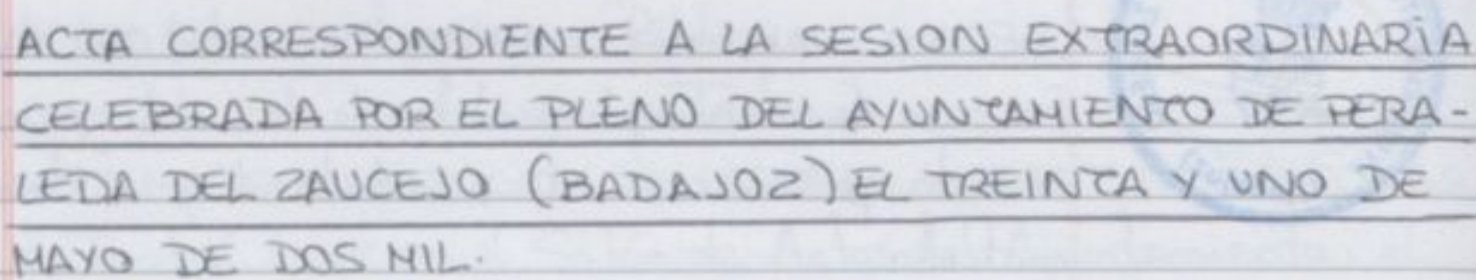 ACTA CORRESPONDIENTE A LA SESION EXTRAORDINARIA
CELEBRADA POR EL PLENO DEL AYUNTAMIENTO DE PERA-
LEDA DEL ZAUCEJO (BADAJOZ) EL TREINTA Y UNO DE
MAYO DE DOS MIL.